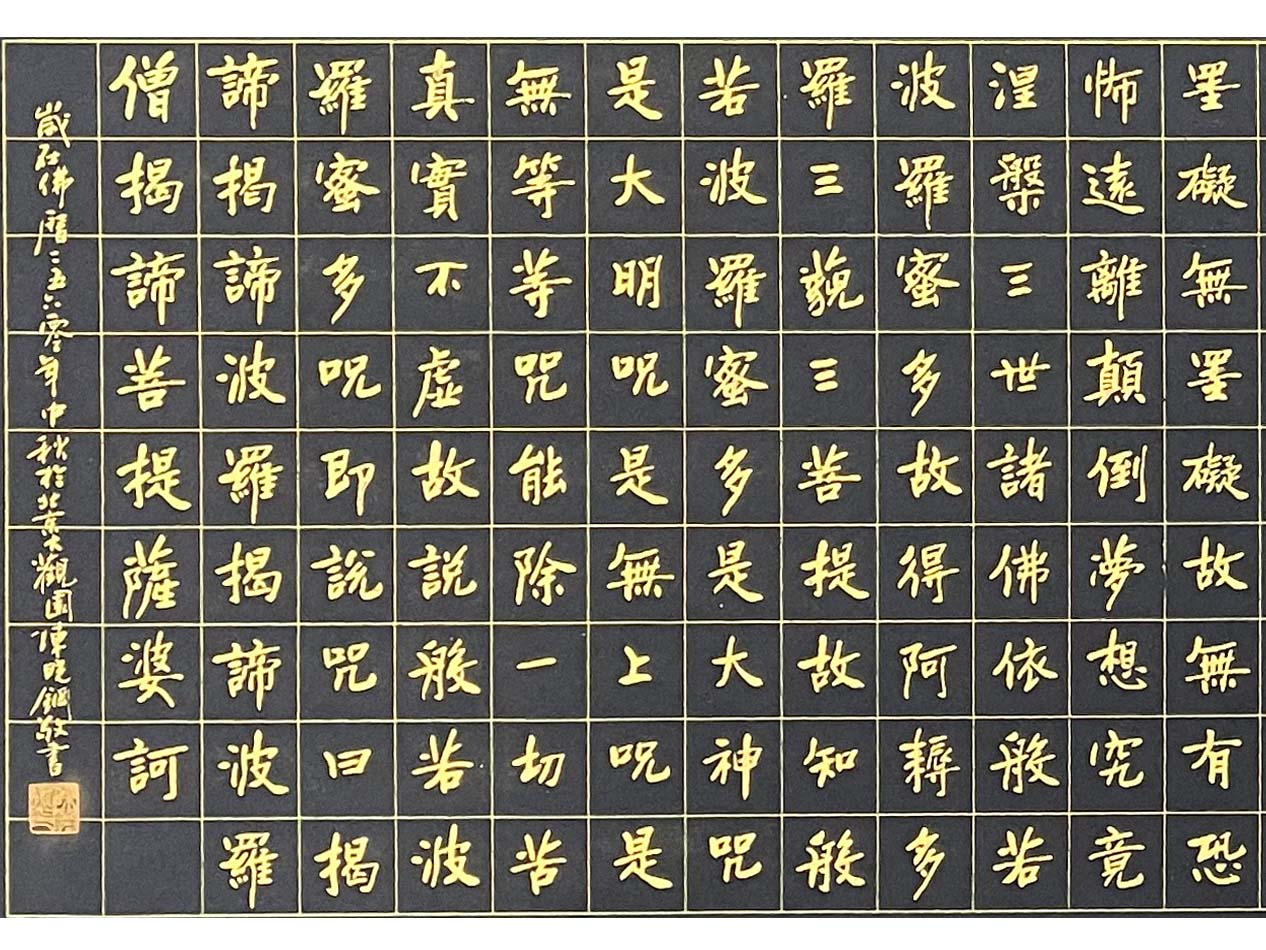 罣礙無罣礙故無有恐
怖遠離顛倒夢想究竟
涅槃三世諸佛依般若
波羅蜜多故得阿耨多
羅三藐三菩提故知般
若波羅蜜多是大神咒
是大明咒是無上咒是
無等等咒能除一切苦
真實不虛故說般若波
羅蜜多咒即說咒曰揭
諦揭諦波羅揭諦波羅
僧揭諦菩提薩婆訶
歲在佛曆二五六零年中秋於北京大觀園陳曉鋼敬書